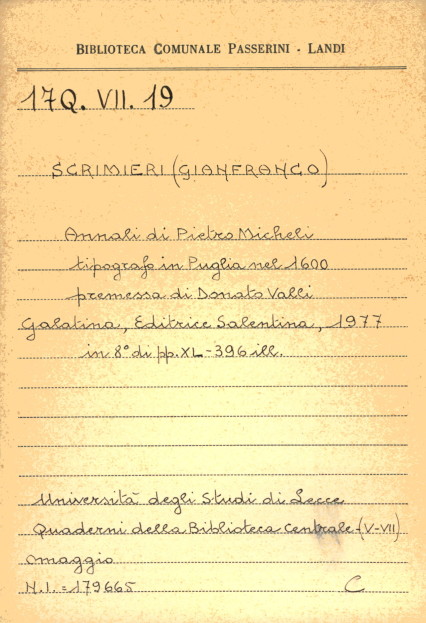 BIBLIOTECA COMUNALE PASSERINI - LANDI
17Q. VII. 19
SCRIMIERI (GIANFRANCO)
Annali di Pietro Micheli
tipografo in Puglia nel 1600
premessa di Donato Valli
Galatina, Editrice Salentina, 1977
in 8° di pp. XL-396 ill.
Università degli Studi di Lecce
Quaderni della Biblioteca Centrale (V-VII)
omaggio
N.I. = 179665 C